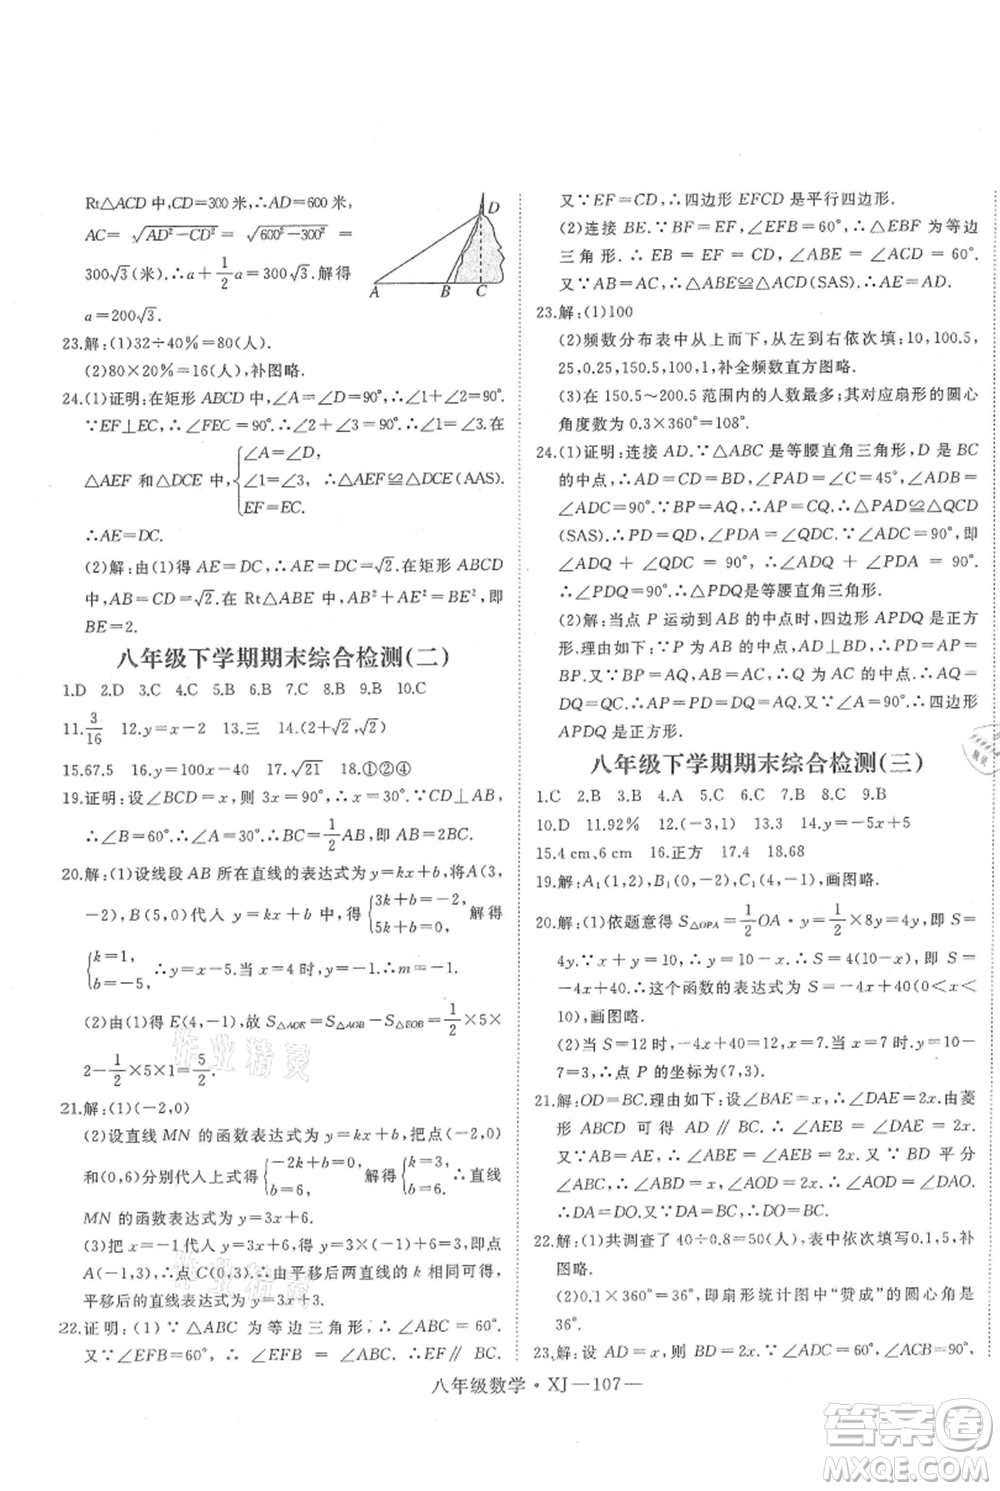 Rt△ACD中,CD=300米,∴AD=600米.
AC=√(AD²−CD²)=√(600²−300²)=
300√3(米).∴a+1/2a=300√3.解得
a=200√3.
A B C D
23.解:(1)32÷40%=80(人).
(2)80×20%=16(人),补图略.
24.(1)证明:在矩形ABCD中,∠A=∠D=90°,∴∠1+∠2=90°.
∵EF⊥EC,∴∠FEC=90°.∴∠2+∠3=90°.∴∠1=∠3.在
△AEF和△DCE中,{∠A=∠D, ∠1=∠3, EF=EC. ∴△AEF≌△DCE(AAS).
∴AE=DC.
(2)解:由(1)得AE=DC,∴AE=DC=√2.在矩形ABCD
中,AB=CD=√2.在Rt△ABE中,AB²+AE²=BE²,即
BE=2.
八年级下学期期末综合检测(二)
1.D 2.D 3.C 4.C 5.B 6.B 7.B 8.C 9.B 10.C
11.3/16 12.y=x-2 13.三 14.(2+√2,√2)
15.67.5 16.y=100x-40 17.√21 18.①②④
19.证明:设∠BCD=x,则3x=90°,∴x=30°.又∵CD⊥AB,
∴∠B=60°.∴∠A=30°.∴BC=1/2AB.
20.解:(1)设线段AB所在的直线的表达式为y=kx+b,将A(3,
-2),B(5,0)代入表达式中,得{3k+b=-2, 5k+b=0. 解得
{k=1, b=-5. ∴y=x-5.当x=4时,y=-1.∴m=-1.
(2)由(1)得E(4,-1),故S△AOE=S△AOB-S△EOB=1/2×5×
2-1/2×5×1=5/2.
21.解:(1)(-2,0)
(2)设直线MN的函数表达式为y=kx+b,把点(-2,0)
和(0,6)分别代入上式,得{-2k+b=0, b=6. 解得{k=3, b=6. ∴直线
MN的函数表达式为y=3x+6.
(3)把x=-1代入y=3x+6,得y=3×(-1)+6=3,即点
A(-1,3),∴点C(0,3).∴由平移后两直线的k相同可得,
平移后的直线表达式为y=3x+3.
22.证明:(1)∵△ABC为等边三角形,∴∠ABC=60°.
又∵∠EFB=60°,∴∠EFB=∠ABC.∴EF∥BC.
又∵EF=CD,∴四边形EFCD是平行四边形.
(2)连接BE.∵BF=EF,∠EFB=60°,∴△EBF为等边
三角形.∴EB=EF=CD,∠ABE=∠ABC=60°.
又∵AB=AC,∴△ABE≌△ACD(SAS).∴AE=AD.
23.解:(1)100
(2)频数分布表中从上而下、从左到右依次填:10,100.5,
25,0.25,150.5,100,1,补全频数直方图略.
(3)在150.5~200.5范围内的人数最多;其对应扇形的圆心
角度数为0.3×360°=108°.
24.(1)证明:连接AD.∵△ABC是等腰直角三角形,D是BC
的中点,∴AD=CD=BD,∠DAP=∠C=45°,∠ADB=
∠ADC=90°.∵BP=AQ,∴AP=CQ.∴△PAD≌△QCD
(SAS).∴PD=QD,∠PDA=∠QDC.∵∠ADC=90°,即
∠ADQ+∠QDC=90°,∴∠ADQ+∠PDA=90°.
∴∠PDQ=90°.∴△PDQ是等腰直角三角形.
(2)解:当点P运动到AB的中点时,四边形APDQ是正
方形.理由:∵P为AB的中点,∴DP=AP=1/2AB.∵AQ=
DQ=QC,∴AP=AQ=DQ=DP.又∵∠A=90°,∴四边形
APDQ是正方形.
八年级下学期期末综合检测(三)
1.C 2.B 3.B 4.A 5.C 6.C 7.B 8.C 9.B
10.D 11.92% 12.(-3,1) 13.3 14.y=-5x+5
15.4 cm、6 cm 16.正方 17.4 18.68
19.解:A₁(1,2),B₁(3,1),C₁(4,-1),画图略.
20.解:(1)依题意得S△OPA=1/2OA·y=1/2×8y=4y,即S=
4y.∵x+y=10,∴y=10-x.∴S=4(10-x),即S=
-4x+40.∴这个函数的表达式为S=-4x+40(0<x<
10),画图略.
(2)当S=12时,-4x+40=12,x=7.当x=7时,y=10-
7=3,∴点P的坐标为(7,3).
21.解:OD=BC.理由如下:设∠BAE=x,则∠DAE=2x.由菱
形ABCD可得AD∥BC.∴∠AEB=∠DAE=2x.
又∵AB=AE,∴∠ABE=∠AEB=2x.又∵BD平分
∠ABC,∴∠ABO=∠DBC=x.∴∠AOD=2x=∠DAO.
∴DA=DO=AB=DC=BC.
22.解:(1)共调查了40÷0.8=50(人),表中依次填写0.1,5,补
图略.
(2)0.1×360°=36°,即扇形统计图中“赞成”的圆心角是
36°.
23.解:设AD=x,则BD=AD=x.∵∠A=30°,∠C=90°,
八年级数学·XJ—107—
作业精灵
作业精灵
答案圈
MXQE.COM